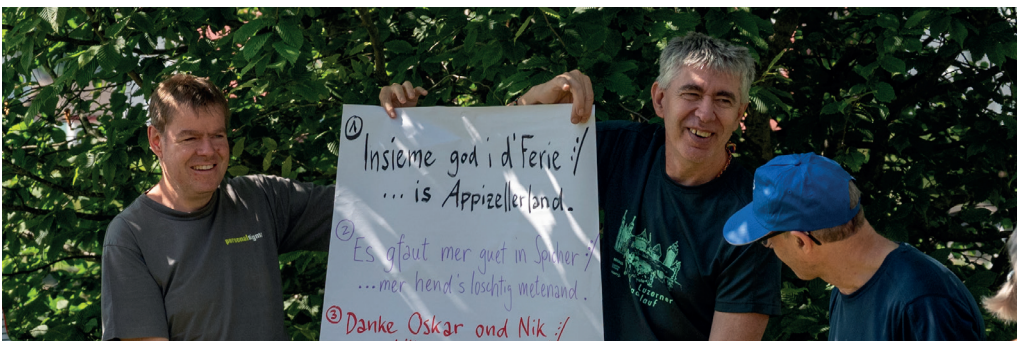 ① Insieme god i d'Ferie :/
... is Appizellerland.
② Es gfaut mer guet in Speicher :/
... mer hend's loschtig metenand.
③ Danke Oskar ond Nik :/
personalsigns
Luzerner